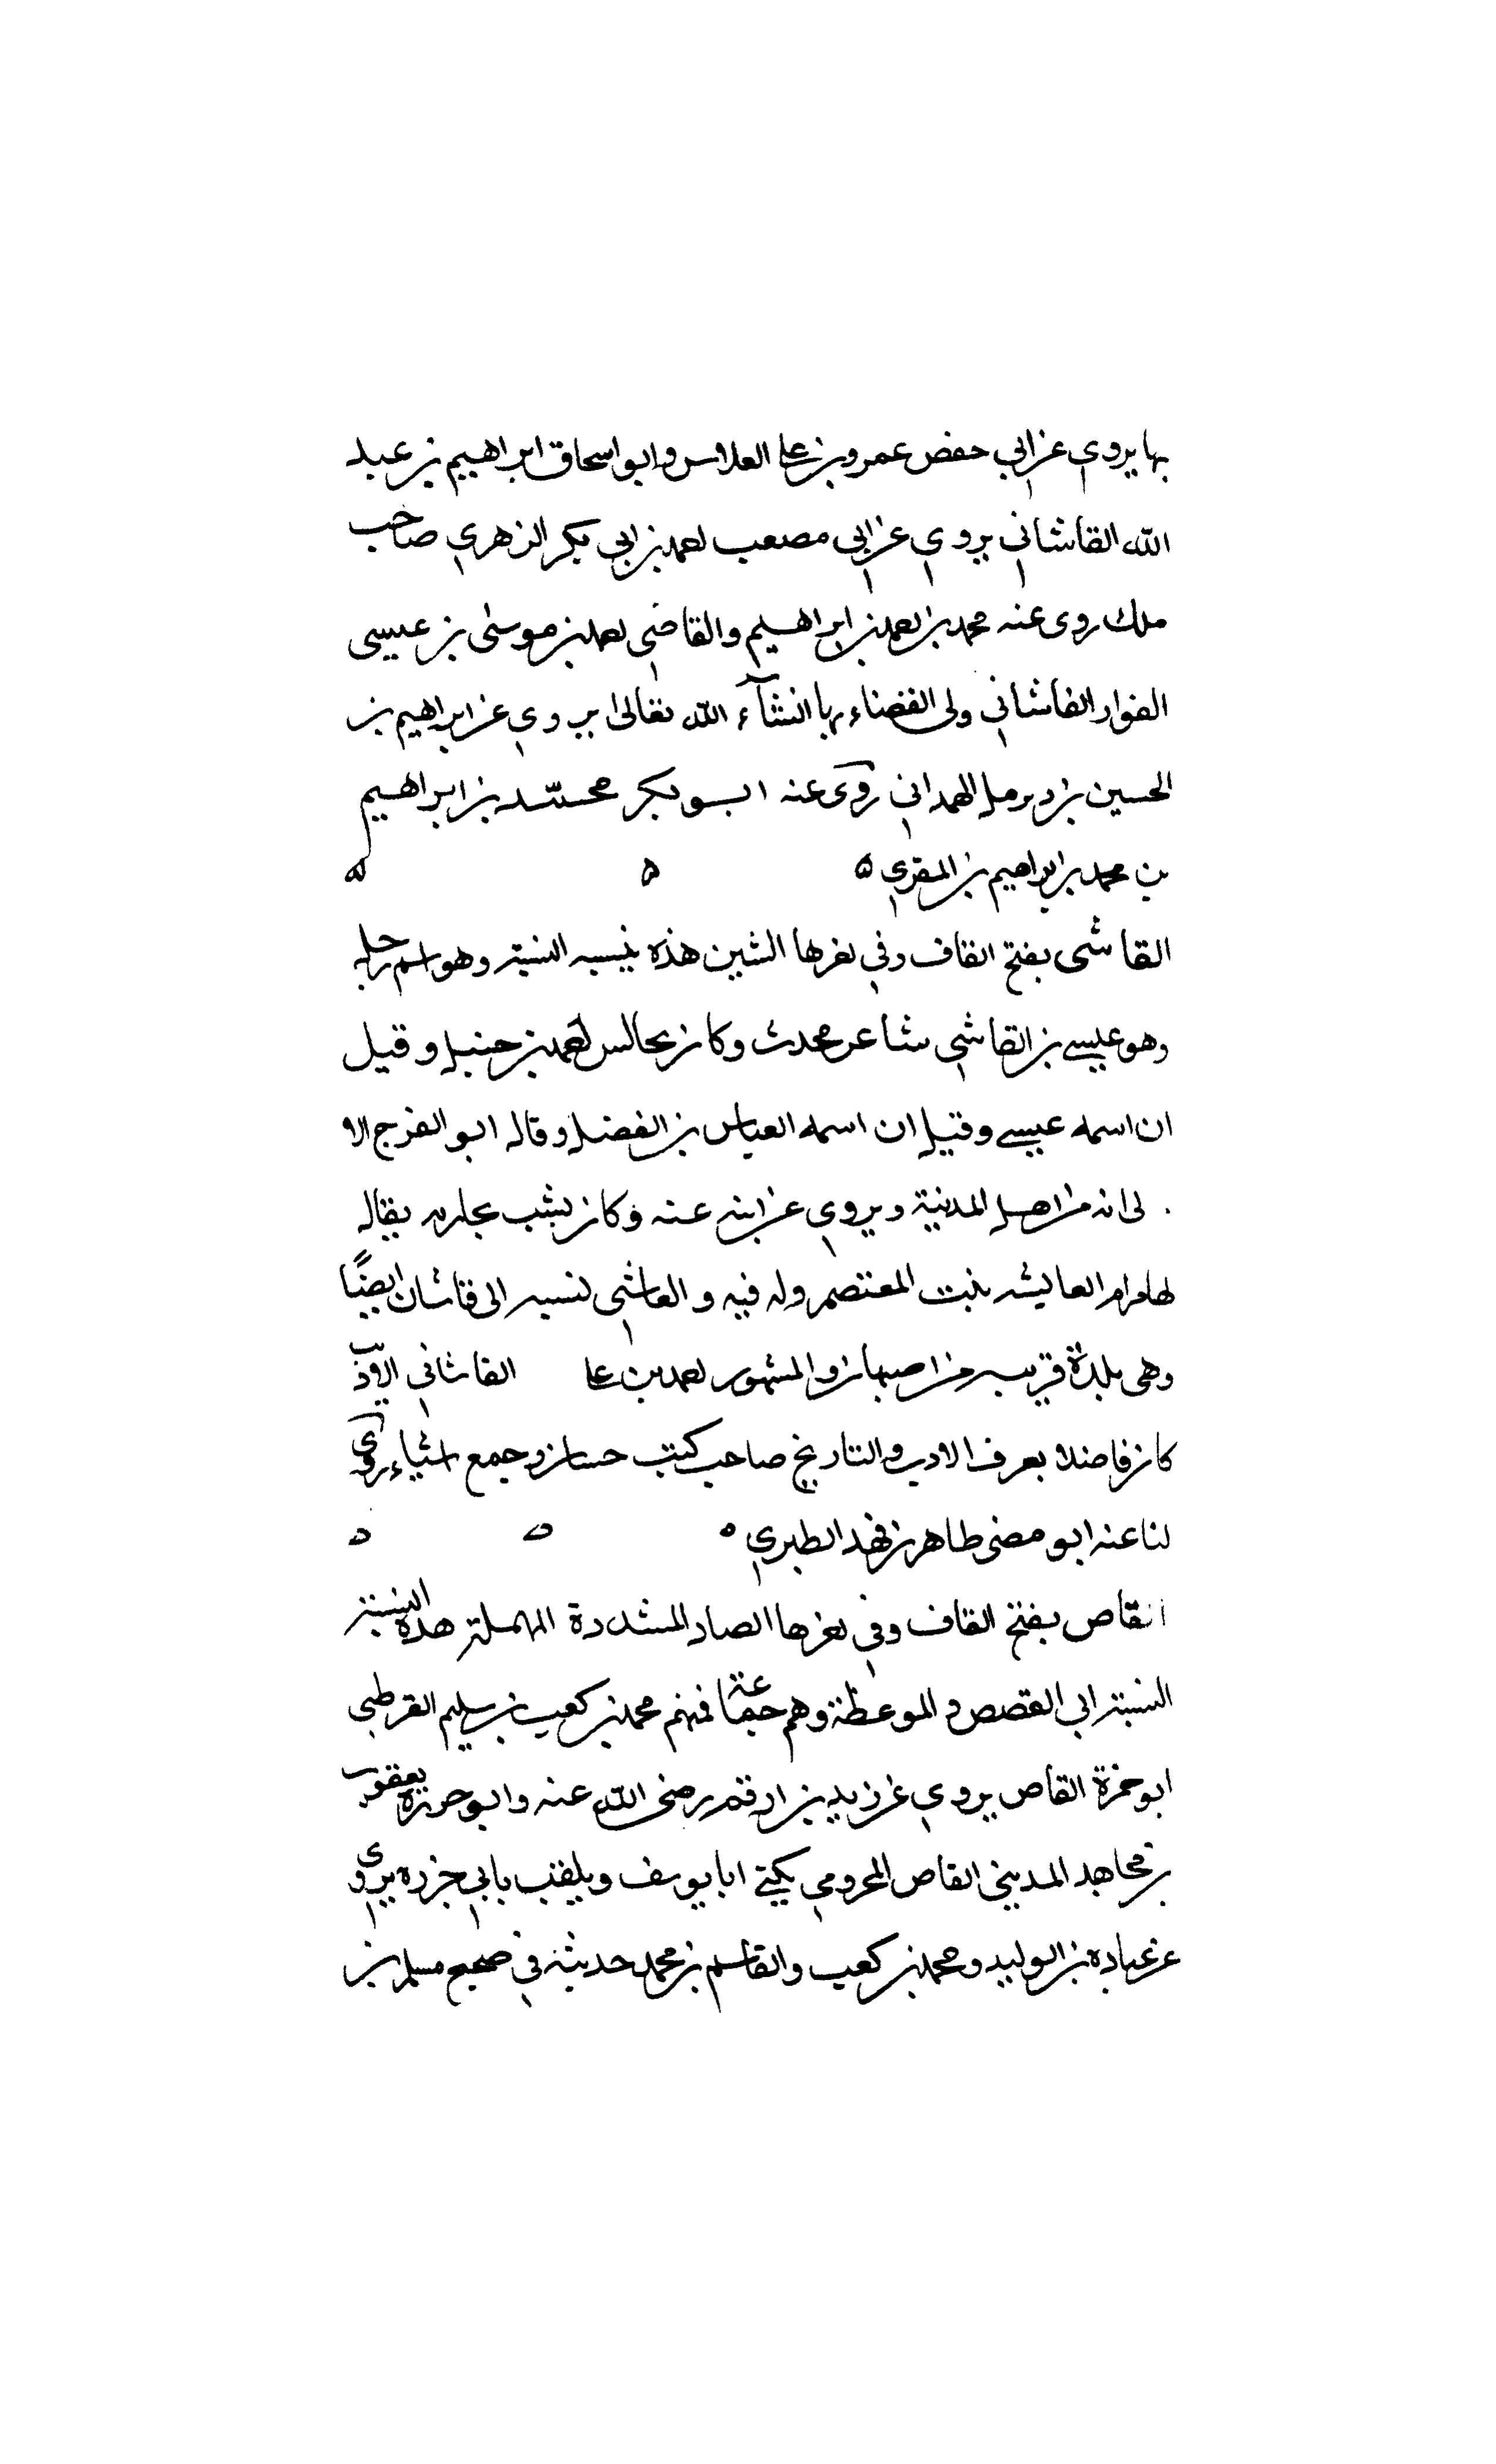 بها يروى عن ابي حفص عمرو بن على الفلاس وابو اسحاق ابراهيم بن عبد
الله القاشاني يروي عن ابي مصعب احمد بن ابي بكر الزهري صاحب
ملك روى عنه محمد بن احمد بن ابراهيم والقاضي احمد بن موسى بن عيسى
القاشاني ولى القضاء بها انشآء الله تعالى يروي عن ابراهيم بن
الحسين بن الهمداني روى عنه ابو بكر محمد بن ابراهيم
بن محمد بن ابراهيم بن المقري ه ه ه
القاشى بفتح القاف وفي اخرها الشين هذه النسبة وهو اسم رجل
وهو عيسى بن القاشي شاعر محدث وكان يجالس احمد بن حنبل وقيل
ان اسمه عيسى وقيل ان اسمه العباس بن الفضل وقال ابو الفرج الا
لى انه من اهل المدينة ويروي عن ابنه عنه وكان يشبب بجارية يقال
لها بنت المعتصم وله فيه و القاشى لنسبه الى قاشان ايضًا
وهى بلدة قريبه من اصبهان والمشهور احمد بن على القاشاني الاديب
كان فاضلا يعرف الادب والتاريخ صاحب كتب حسان وجمع اشياء روى
لنا عنه ابو مضى طاهر بن فهد الطبري ه ه ه
القاص بفتح القاف وفي اخرها الصاد المشددة المهملة هذه النسبة
النسبة الى القصص و الموعظة وهم جماعة فمنهم محمد بن كعب بن سليم القرظي
ابو حمزة القاص يروي عن زيد بن ارقم رضى الله عنه وابو حرزة يعقوب
بن مجاهد المديني القاص المخرومي يكنى ابا يوسف ويلقب بابي حزرة يروى
عن عبادة بن الوليد ومحمد بن كعب والقاسم بن محمد حديثه في صحيح مسلم بن